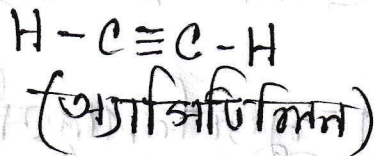 H - C ≡ C - H
(অ্যাসিটিলিন)